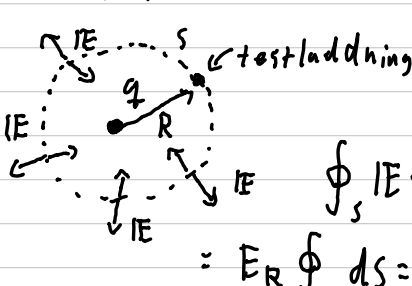 𝔼 S testladdning
q
𝔼 R 𝔼
𝔼
∮_S 𝔼 ·
= E_R ∮ dS =